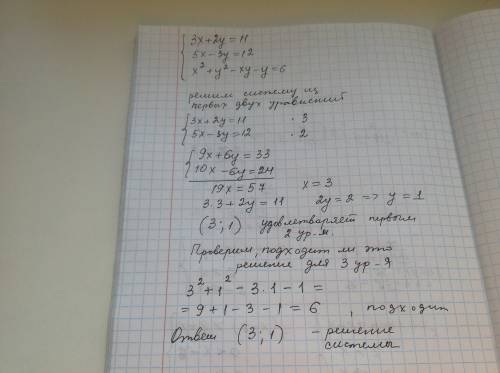 3x+2y=11
5x-3y=12
x²+y²-xy-y=6
решим систему из
первых двух уравнений
3x+2y=11 ·3
5x-3y=12 ·2
9x+6y=33
10x-6y=24
19x=57 x=3
3·3+2y=11 2y=2 => y=1
(3;1) удовлетваряет первым
2 ур-м.
Проверим, подходит ли это
решение для 3 ур-я
3²+1²-3·1-1=
=9+1-3-1=6, подходит
Ответ (3;1) - решение
системы